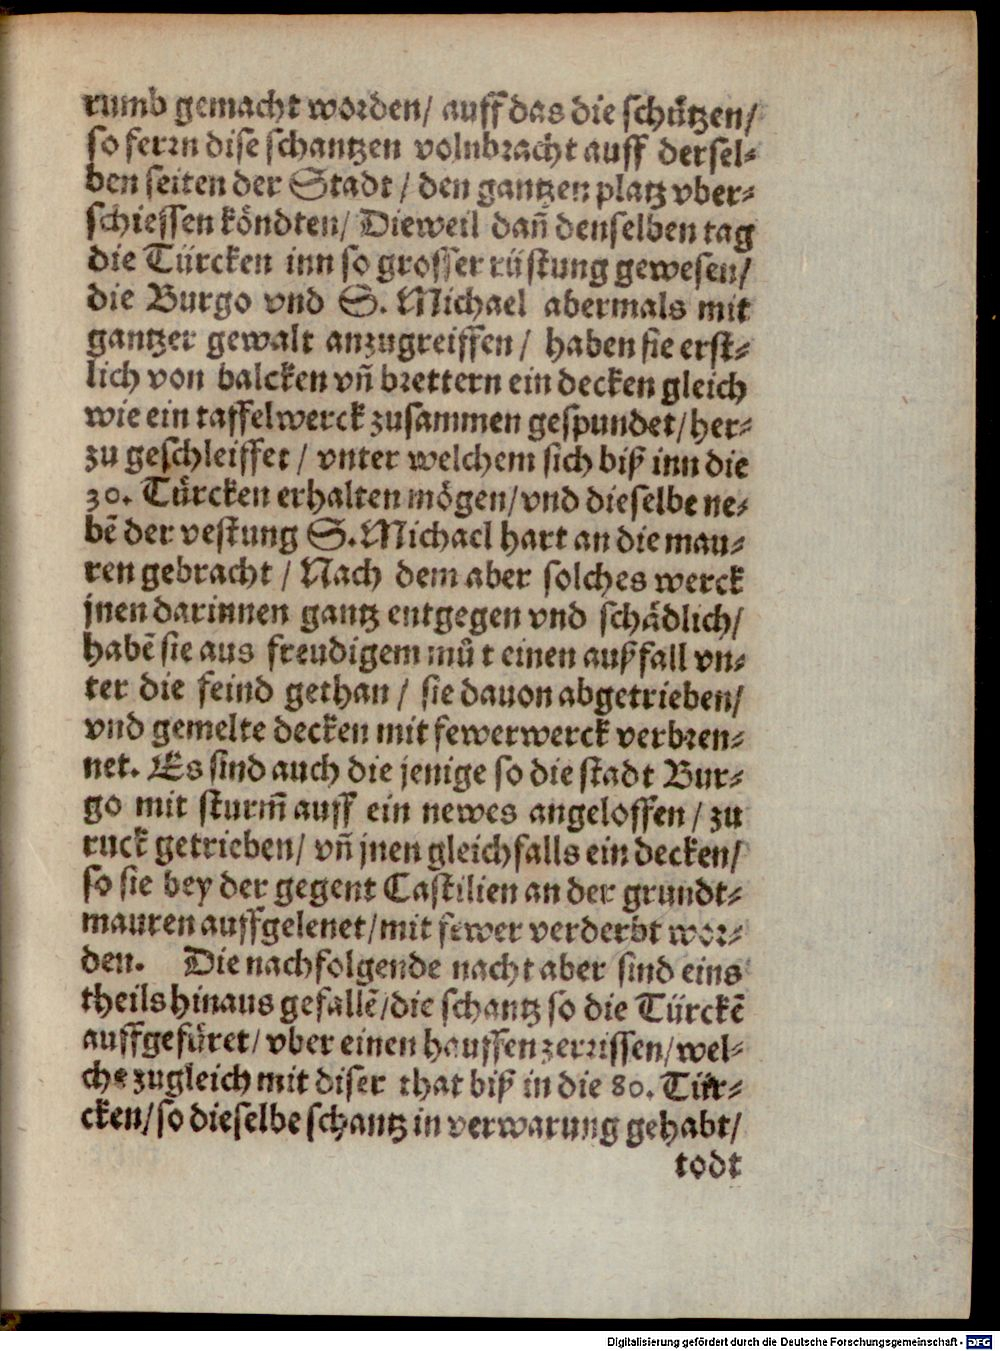 rumb gemacht worden/ auff das die schützen/
so ferrn dise schantzen volnbracht auff dersel-
ben seiten der Stadt / den gantzen platz vber-
schiessen köndten/ Dieweil dañ denselben tag
die Türcken inn so grosser rüstung gewesen/
die Burgo vnd S. Michael abermals mit
gantzer gewalt anzugreiffen / haben sie erst-
lich von balcken vñ brettern ein decken gleich
wie ein taffelwerck zusammen gespundet/her-
zu geschleiffet / vnter welchem sich biß inn die
30. Türcken erhalten mögen/vnd dieselbe ne-
bẽ der vestung S. Michael hart an die mau-
ren gebracht / Nach dem aber solches werck
jnen darinnen gantz entgegen vnd schädlich/
habẽ sie aus freudigem mů t einen außfall vn-
ter die feind gethan / sie dauon abgetrieben/
vnd gemelte decken mit fewerwerck verbren-
net. Es sind auch die jenige so die stadt Bur-
go mit sturm̃ auff ein newes angeloffen / zu
ruck getrieben/ vñ jnen gleichfalls ein decken/
so sie bey der gegent Castilien an der grundt-
mauren auffgelenet/mit fewer verderbt wor-
den. Die nachfolgende nacht aber sind eins
theils hinaus gefallẽ/die schantz so die Türckẽ
auffgefüret/ vber einen hauffen zerrissen/wel-
che zugleich mit diser that biß in die 80. Tür-
cken/so dieselbe schantz in verwarung gehabt/
todt
Digitalisierung gefördert durch die Deutsche Forschungsgemeinschaft - DFG